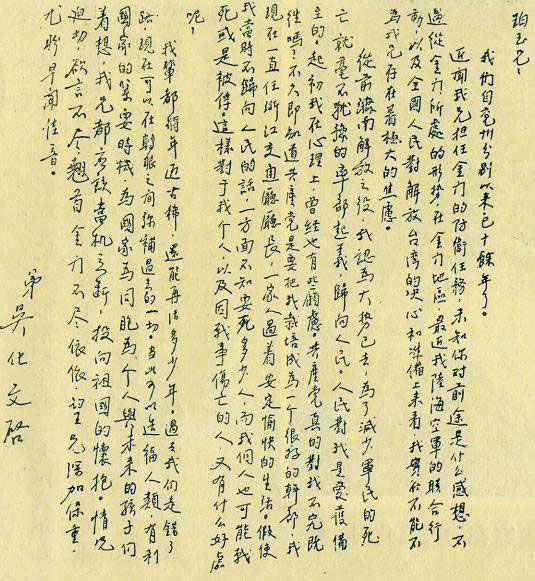 玉兄:
我们自亳州分别以来,已十餘年了。
近闻我兄担任金门的防衛任務,未知你对前途是什么感想,不
過從金门所處的形势,在金门地區,最近我陸海空軍的联合行
动,以及全國人民對解放台湾的决心和准備上来看,我實在不能不
為我兄存在着極大的焦慮。
從前濟南解放之役,我認為大势已去,為了减少軍民的死
亡就毫不犹豫的率部起義,歸向人民。人民對我是愛護備
至的。起初我在心理上,曾经也有些顾慮。共產党真的對我不究既
往嗎?不久即知道共產党是要把我栽培成為一个很好的幹部,我
現在一直任浙江交通廳廳長,一家人過着安定愉快的生活。假使
我當時不歸向人民的話,一方面不知要死多少人,而我個人也可能戰
死或是被俘。這樣對于我个人,以及因戰事傷亡的人,又有什么好處
呢!
我輩都将年近古稀,還能再活多少年。過去我们走錯了
路,現在可以在轉眼之间弥補過去的一切。当此可以造福人類,有利
國家的緊要時机,為國家為同胞為个人與未来的孩子们
着想,我兄都應該當机立断,投向祖國的懷抱。情况
迫切欲言不尽,翹首金门不尽依依,望兄深加保重,
尤盼早闻佳音。
弟 吴化文啓